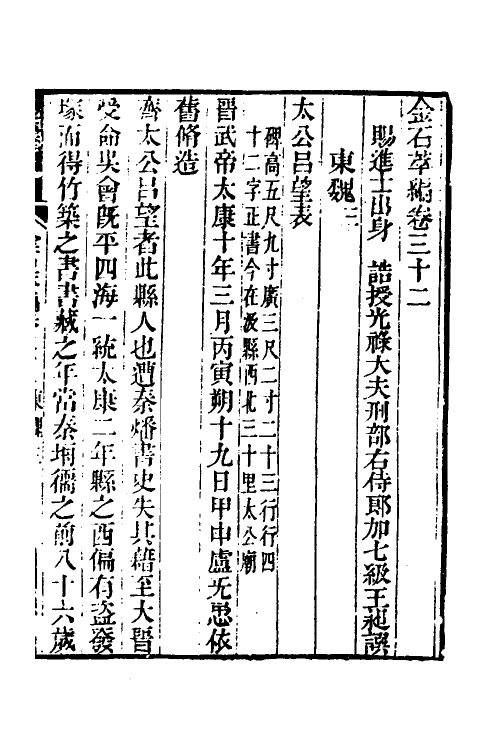 金石萃編卷三十二
賜進士出身　誥授光祿大夫刑部右侍郎加七級王昶譔
東魏三
太公呂望表
碑高五尺九寸廣三尺二寸二十三行行四
十二字正書今在汲縣西北三十里太公廟
晉武帝太康十年三月丙寅朔十九日甲申盧无忌依
舊脩造
齊太公呂望者此縣人也遭秦燔書史失其籍至大晉
受命吳會旣平四海一統太康二年縣之西偏有盜發
塚而得竹策之書書藏之年當秦坑儒之前八十六歲